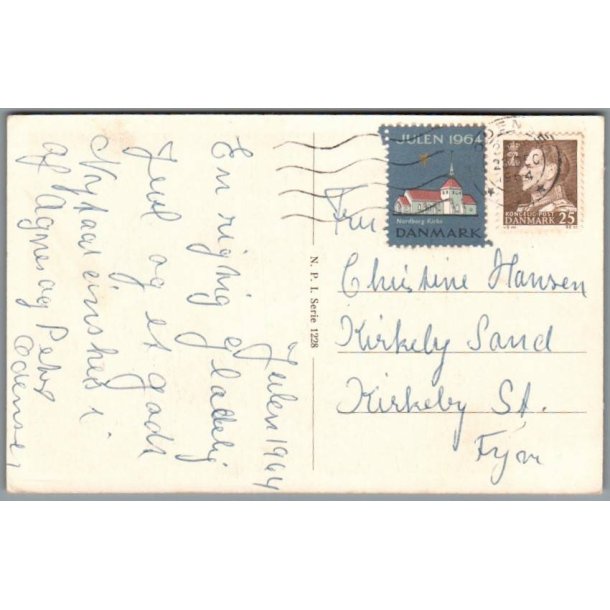 Julen 1964
En rigtig glædelig
Jul og et godt
Nytaar ønskes i
af Agnes og Peter
Odense,
N. P. I. Serie 1228
JULEN 1964
Nordborg Kirke
DANMARK
KONGELIG POST
DANMARK 25
Fru
Christine Hansen
Kirkeby Sand
Kirkeby St.
Fyn